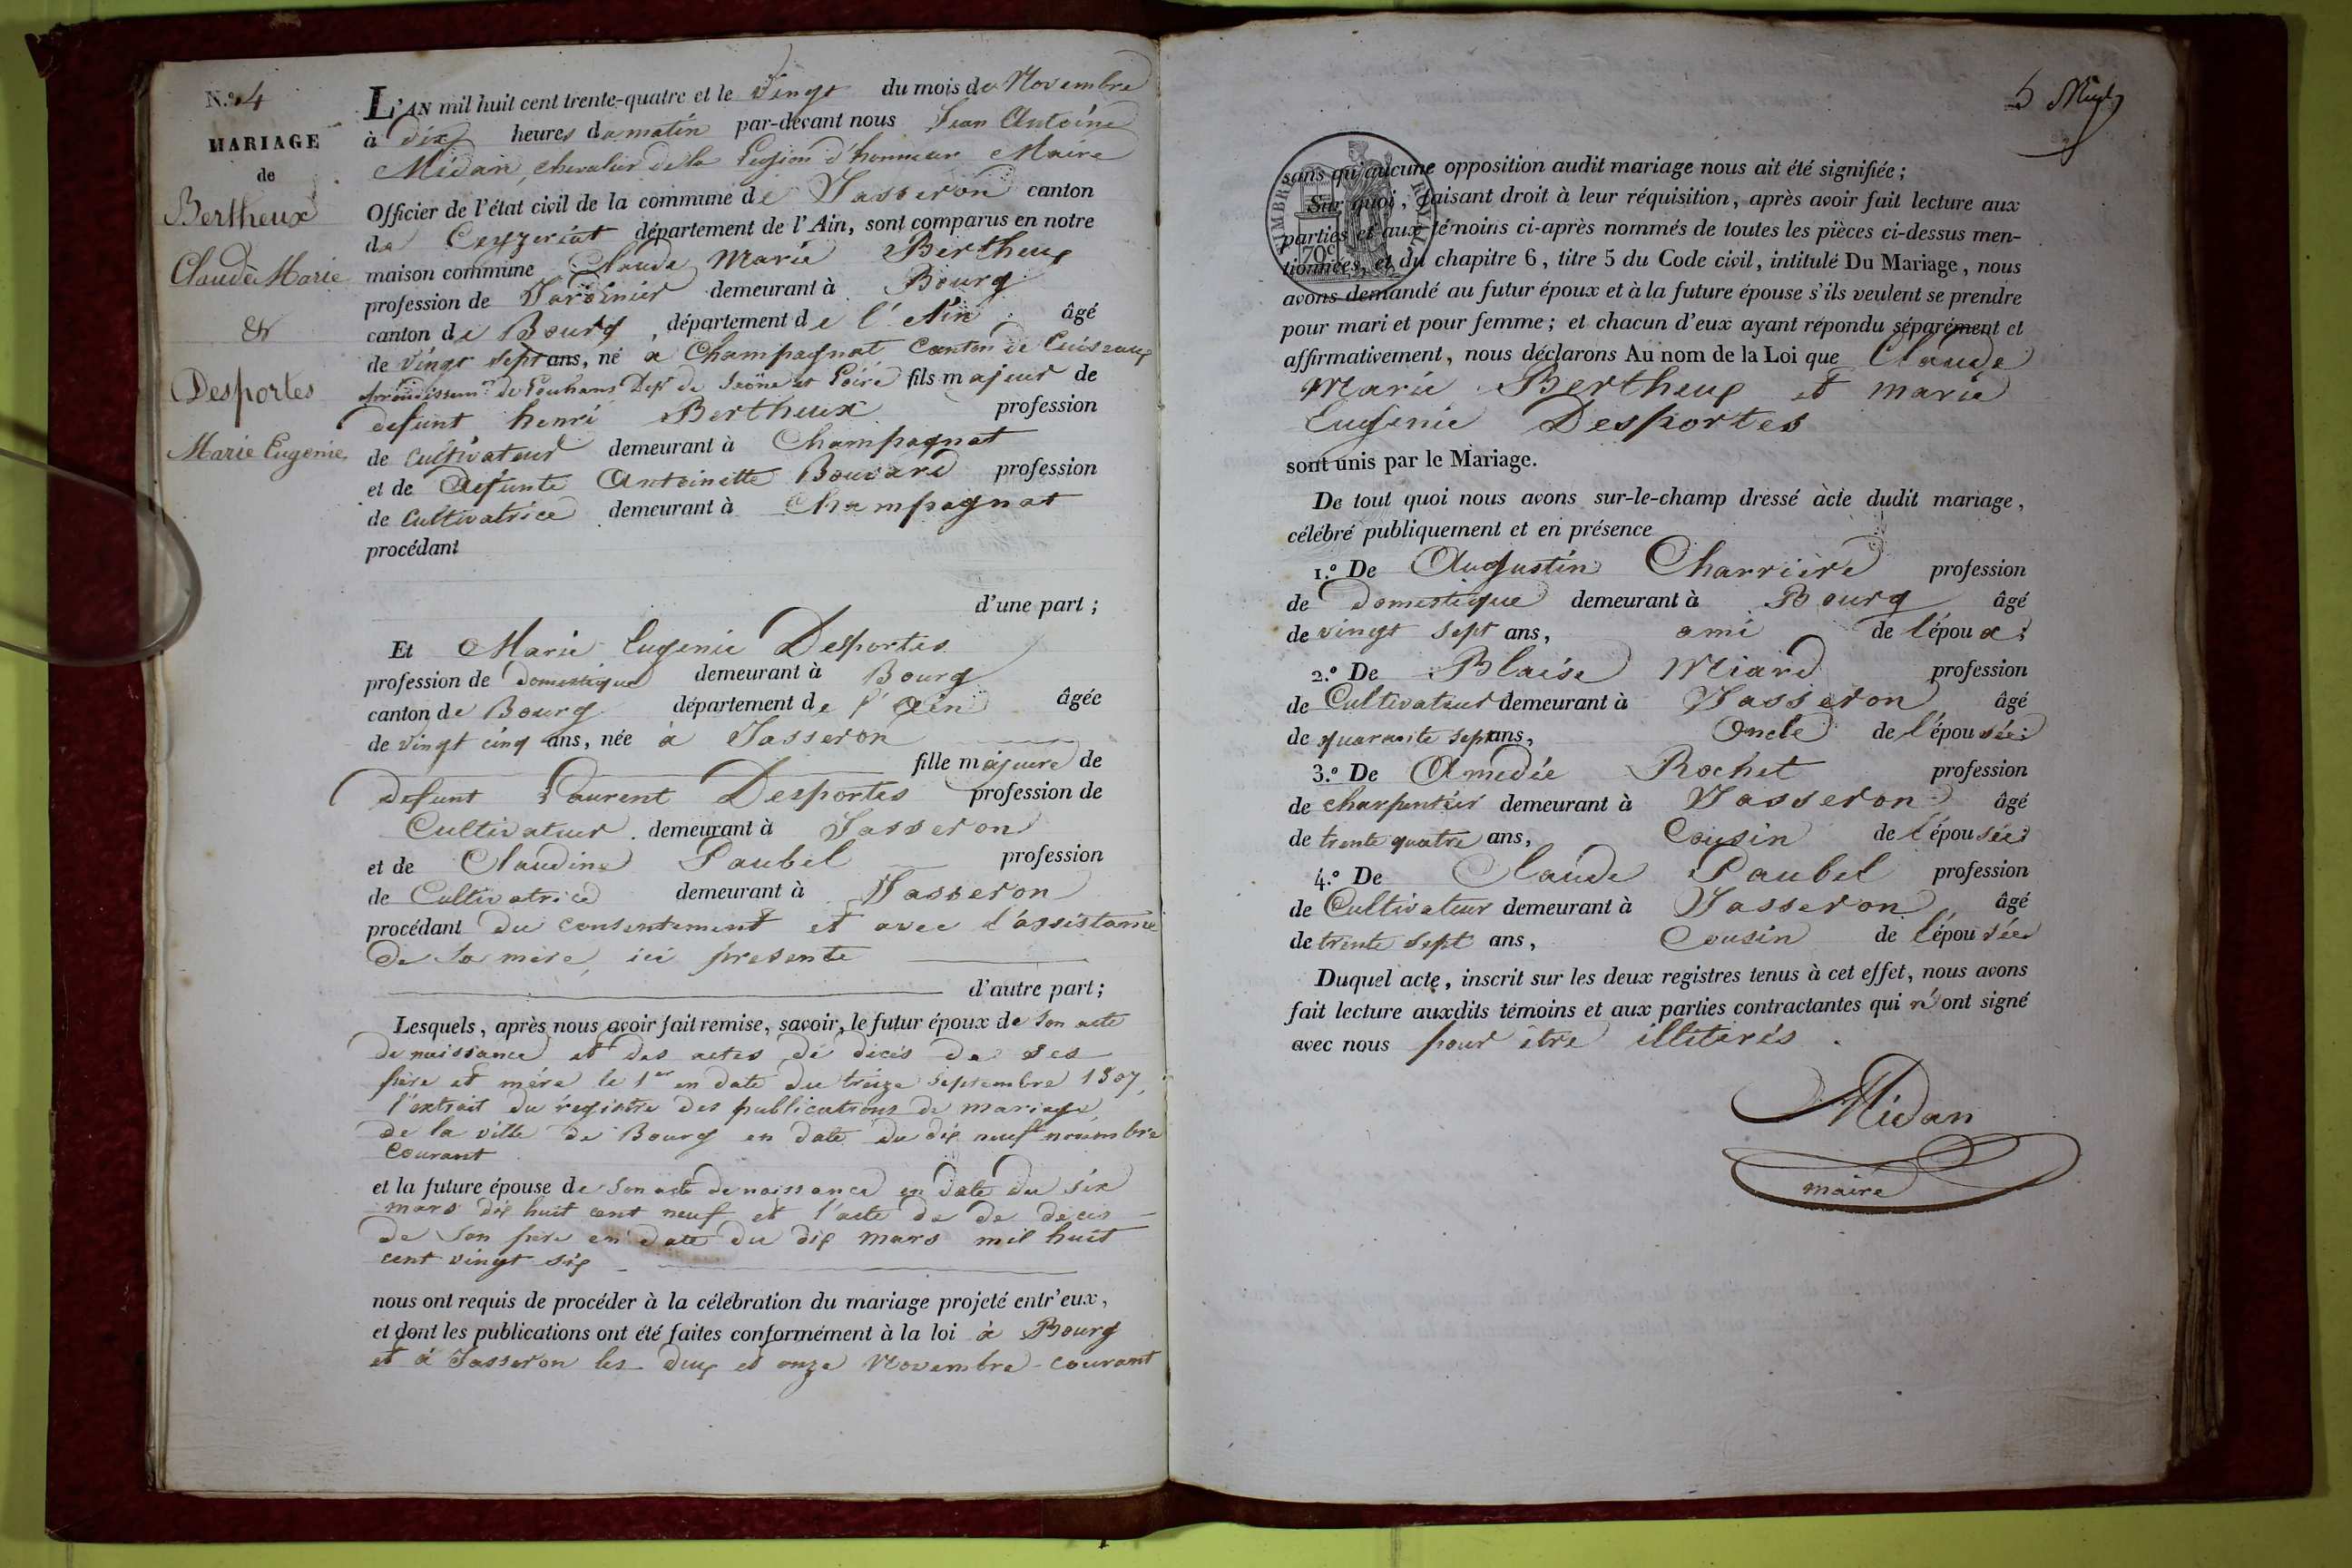 N.º 4
MARIAGE
de
Bertheux
Claude Marie
&
Desportes
Marie Eugenie
L'AN mil huit cent trente-quatre et le vingt du mois de Novembre
à dix heures du matin par-devant nous Jean Antoine
Midan, chevalier de la Legion d'honneur Maire
Officier de l'état civil de la commune de Jasseron canton
de Ceyzeriat département de l'Ain, sont comparus en notre
maison commune Claude Marie Bertheux
profession de Jardinier demeurant à Bourg
canton de Bourg département de l'Ain âgé
de vingt sept ans, né à Champagnat Canton de Cuiseaux
arrondissemt de Louhans Dept de Saône et Loire fils majeur de
defunt henri Bertheux profession
de cultivateur demeurant à Champagnat
et de defunte Antoinette Bouvard profession
de Cultivatrice demeurant à Champagnat
procédant
d'une part ;
Et Marie Eugenie Desportes
profession de Domestique demeurant à Bourg
canton de Bourg département de l'Ain âgée
de vingt cinq ans, née à Jasseron
fille majeure de
defunt Laurent Desportes profession de
Cultivateur demeurant à Jasseron
et de Claudine Paubel profession
de Cultivatrice demeurant à Jasseron
procédant du consentement et avec l'assistance
de sa mère, ici presente
d'autre part ;
Lesquels, après nous avoir fait remise, savoir, le futur époux de son acte
de naissance et des actes de décès de ses
père et mère le 1er en date du treize septembre 1807,
l'extrait du régistre des publications de mariage
de la ville de Bourg en date du dix neuf novembre
courant
et la future épouse de son acte de naissance en date du six
mars dix huit cent neuf et l'acte de de décès
de son père en date du dix mars mil huit
cent vingt six
nous ont requis de procéder à la célébration du mariage projeté entr'eux,
et dont les publications ont été faites conformément à la loi à Bourg
et à Jasseron les deux et onze Novembre courant
5
TIMBRE ROYAL
70 c
sans qu'aucune opposition audit mariage nous ait été signifiée ;
Sur quoi, faisant droit à leur réquisition, après avoir fait lecture aux
parties et aux témoins ci-après nommés de toutes les pièces ci-dessus men-
tionnées, et du chapitre 6, titre 5 du Code civil, intitulé Du Mariage, nous
avons demandé au futur époux et à la future épouse s'ils veulent se prendre
pour mari et pour femme ; et chacun d'eux ayant répondu séparément et
affirmativement, nous déclarons Au nom de la Loi que Claude
Marie Bertheux et marie
Eugenie Desportes
sont unis par le Mariage.
De tout quoi nous avons sur-le-champ dressé àcte dudit mariage,
célébré publiquement et en présence
1.º De Augustin Charrière profession
de Domestique demeurant à Bourg âgé
de vingt sept ans, ami de l'époux ;
2.º De Blaise Miard profession
de Cultivateur demeurant à Jasseron âgé
de quarante sept ans, Oncle de l'épousée
3.º De Amedée Rochet profession
de charpentier demeurant à Jasseron âgé
de trente quatre ans, Cousin de l'épousée
4.º De Claude Paubel profession
de Cultivateur demeurant à Jasseron âgé
de trente sept ans, Cousin de l'épousée
Duquel acte, inscrit sur les deux registres tenus à cet effet, nous avons
fait lecture auxdits témoins et aux parties contractantes qui n'ont signé
avec nous pour être illiterés.
Midan
maire